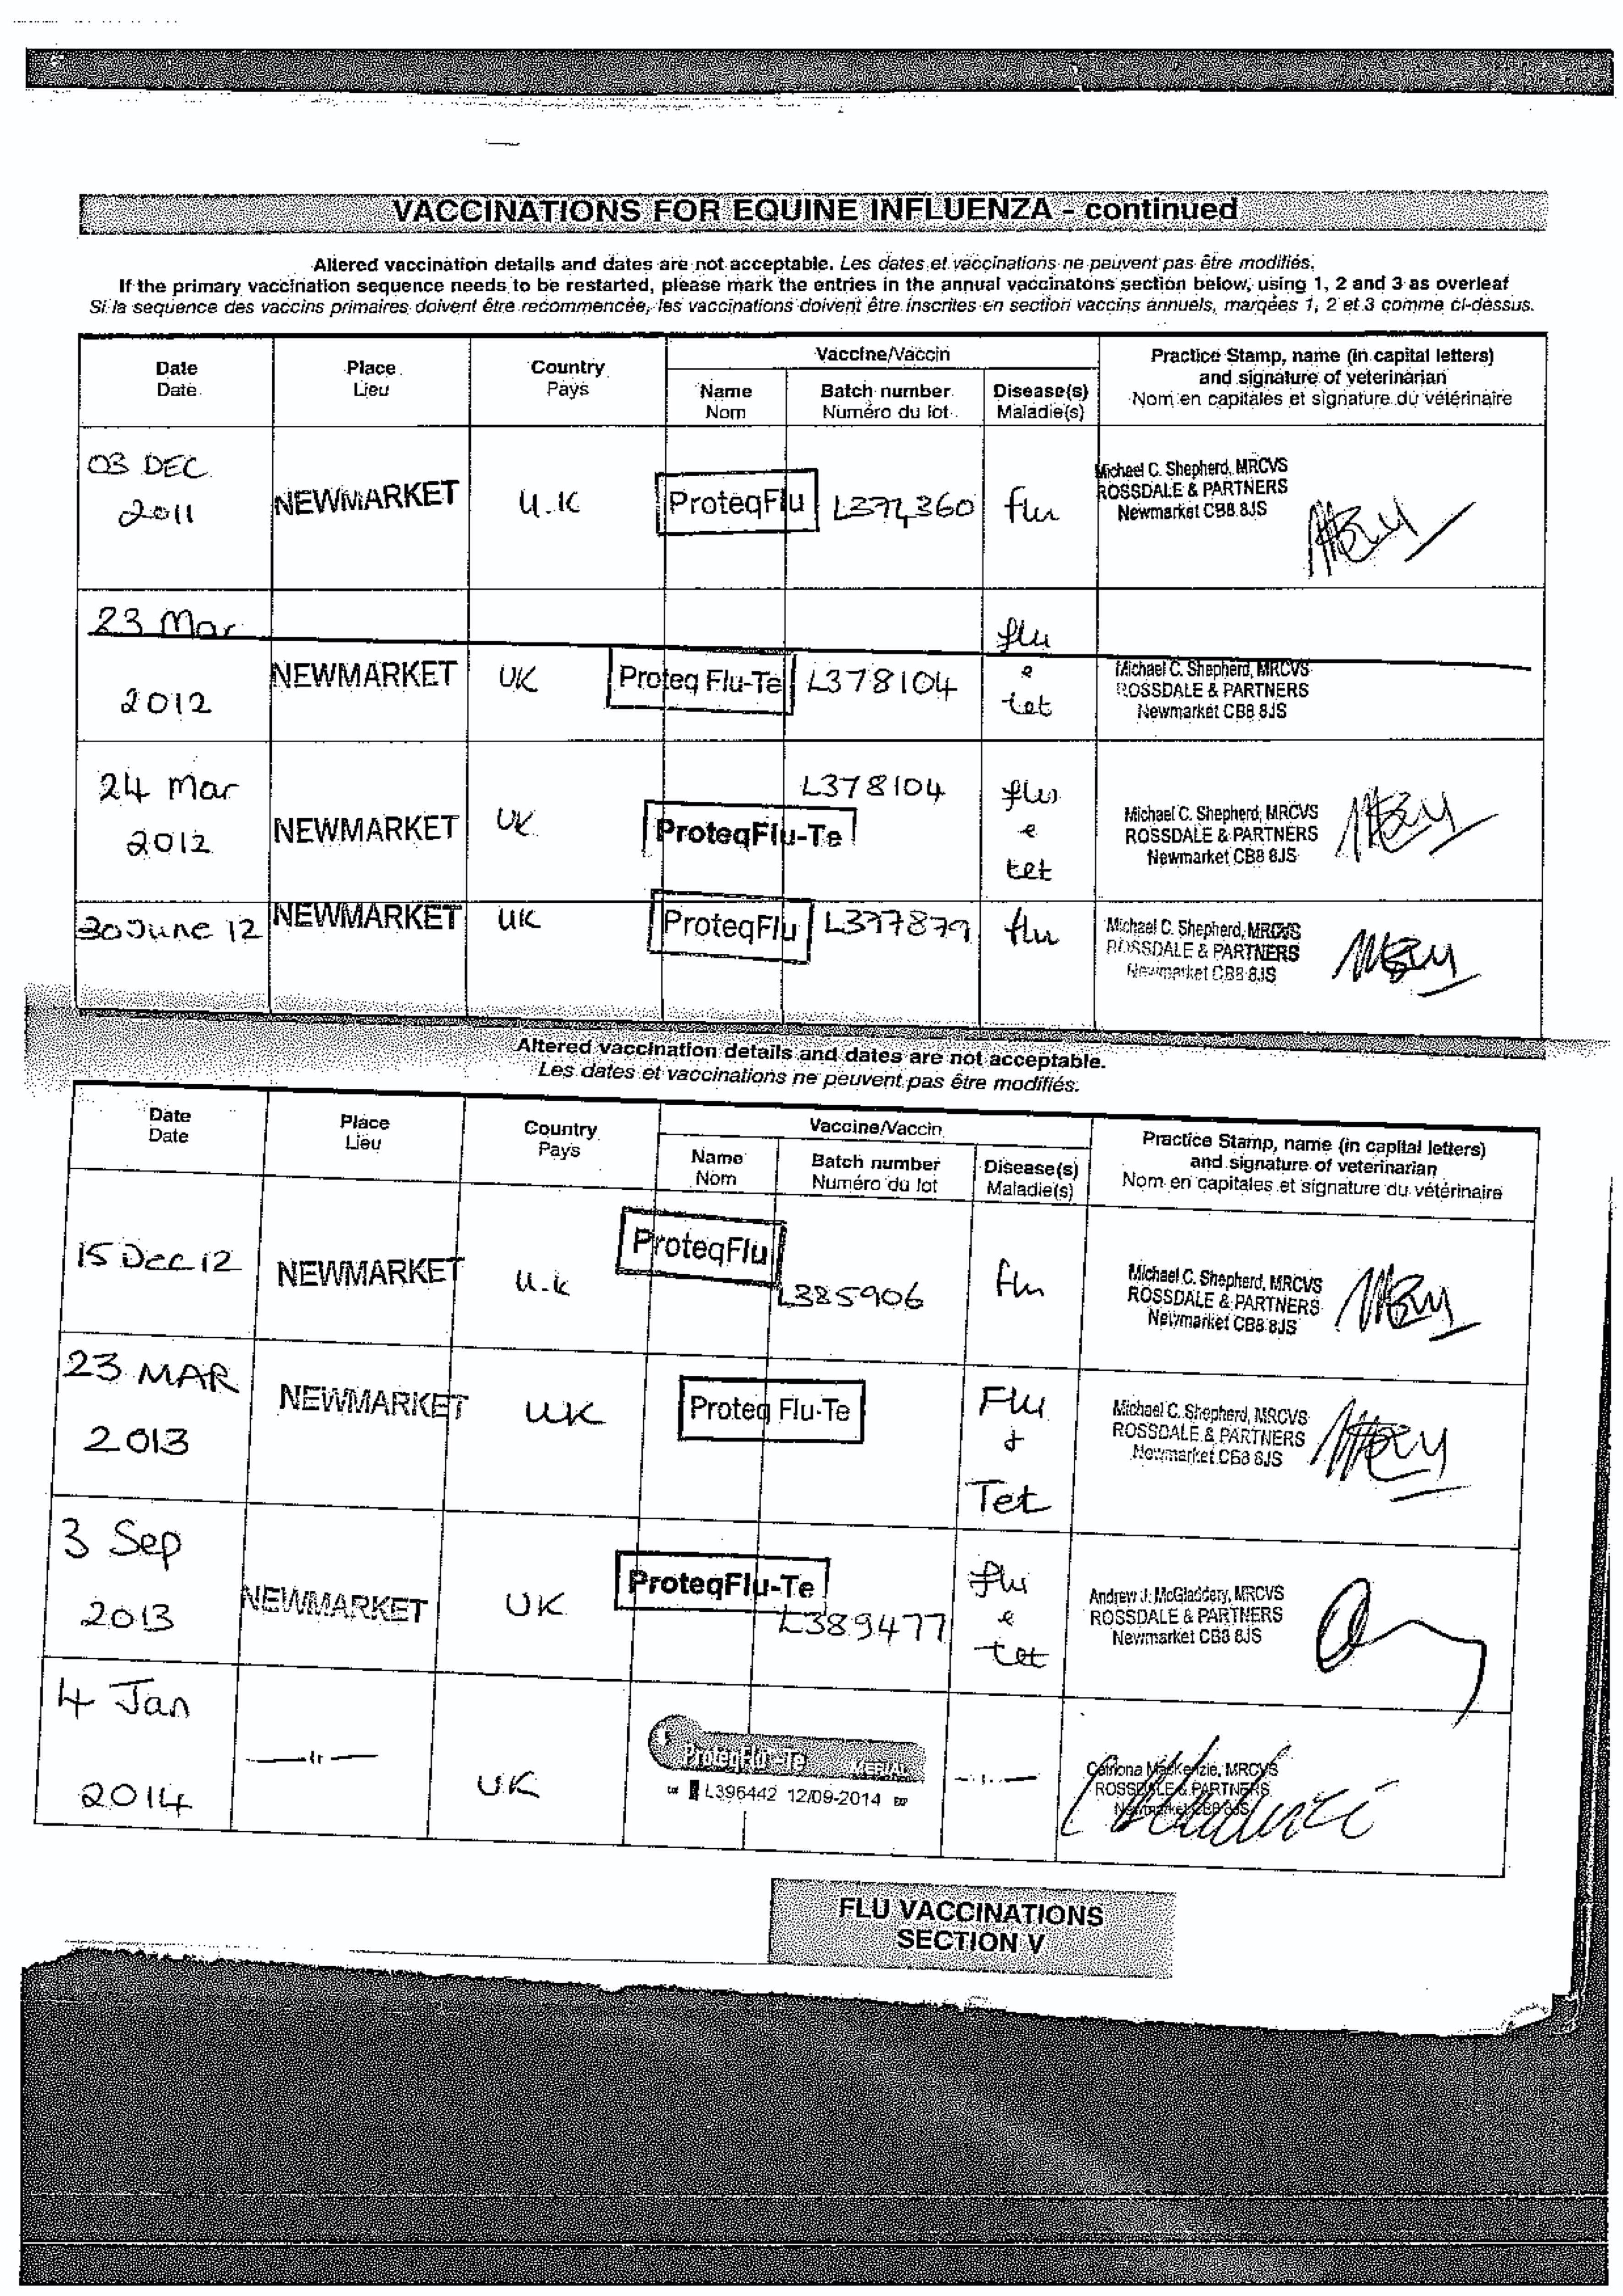 VACCINATIONS FOR EQUINE INFLUENZA - continued
Altered vaccination details and dates are not acceptable. Les dates et vaccinations ne peuvent pas être modifiés.
If the primary vaccination sequence needs to be restarted, please mark the entries in the annual vaccinatons section below, using 1, 2 and 3 as overleaf
Si la sequence des vaccins primaires doivent être recommencée, les vaccinations doivent être inscrites en section vaccins annuels, marqées 1, 2 et 3 comme ci-dessus.
Date Place Country Vaccine/Vaccin Practice Stamp, name (in capital letters)
Date Lieu Pays Name Batch number Disease(s) and signature of veterinarian
Nom Numéro du lot Maladie(s) Nom en capitales et signature du vétérinaire
03 DEC Michael C. Shepherd, MRCVS
2011 NEWMARKET U.K ProteqFlu L374360 flu ROSSDALE & PARTNERS
Newmarket CB8 8JS
23 Mar flu
NEWMARKET UK Proteq Flu-Te L378104 e Michael C. Shepherd, MRCVS
2012 tet ROSSDALE & PARTNERS
Newmarket CB8 8JS
24 Mar L378104 flu
2012 NEWMARKET UK ProteqFlu-Te e Michael C. Shepherd, MRCVS
tet ROSSDALE & PARTNERS
Newmarket CB8 8JS
30 June 12 NEWMARKET UK ProteqFlu L397879 flu Michael C. Shepherd, MRCVS
ROSSDALE & PARTNERS
Newmarket CB8 8JS
Altered vaccination details and dates are not acceptable.
Les dates et vaccinations ne peuvent pas être modifiés.
Date Place Country Vaccine/Vaccin Practice Stamp, name (in capital letters)
Date Lieu Pays Name Batch number Disease(s) and signature of veterinarian
Nom Numéro du lot Maladie(s) Nom en capitales et signature du vétérinaire
15 Dec 12 NEWMARKET U.K ProteqFlu L385906 flu Michael C. Shepherd, MRCVS
ROSSDALE & PARTNERS
Newmarket CB8 8JS
23 MAR NEWMARKET UK Proteq Flu-Te Flu Michael C. Shepherd, MRCVS
2013 & ROSSDALE & PARTNERS
Tet Newmarket CB8 8JS
3 Sep ProteqFlu-Te flu Andrew J. McGladdery, MRCVS
2013 NEWMARKET UK L389477 e ROSSDALE & PARTNERS
tet Newmarket CB8 8JS
4 Jan ProteqFlu-Te MERIAL Catriona MacKenzie, MRCVS
2014 —"— UK Lot L396442 12/09-2014 EXP —"— ROSSDALE & PARTNERS
Newmarket CB8 8JS
FLU VACCINATIONS
SECTION V